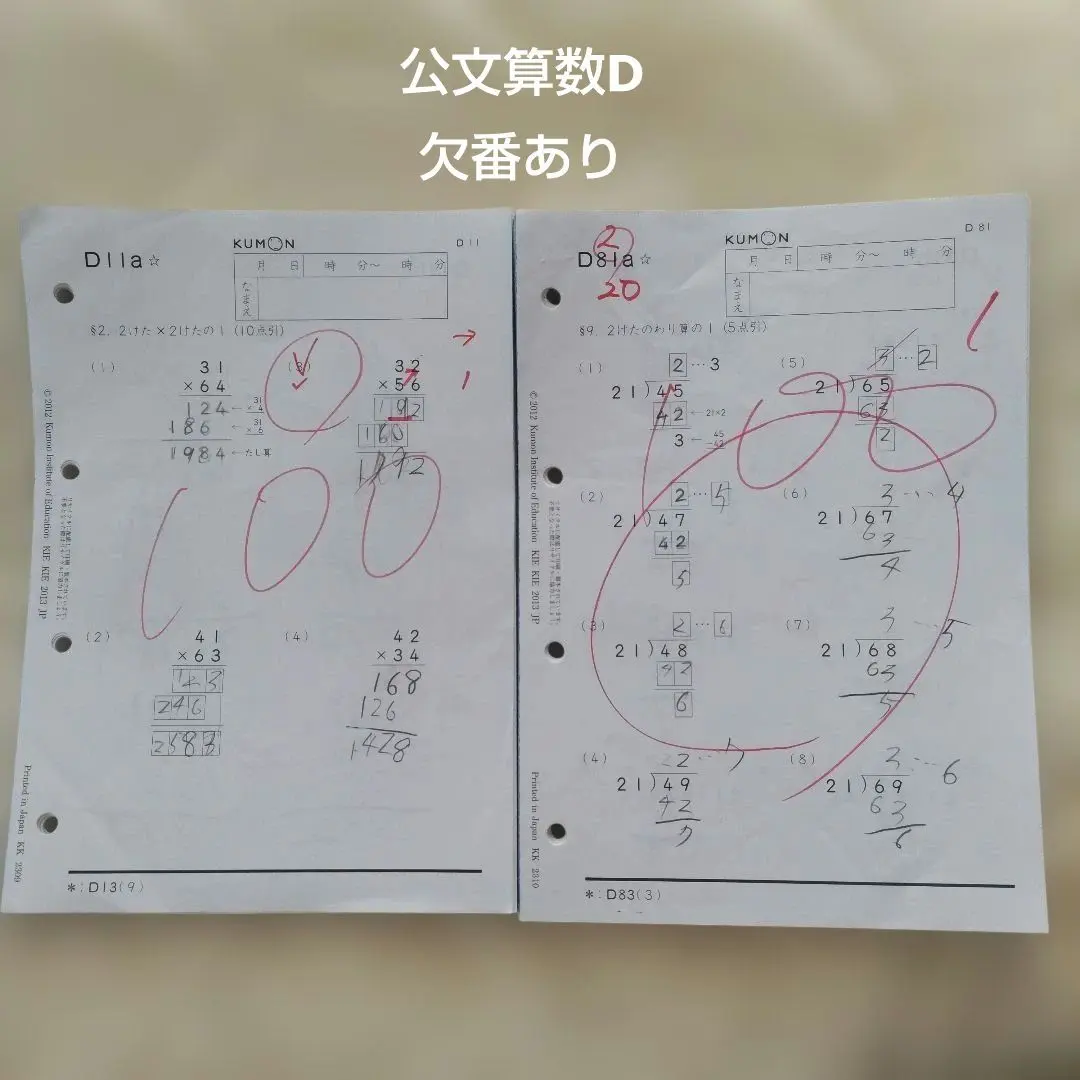 公文算数D
欠番あり
KUMON
D11
D11a☆
月 日 時 分〜 時 分
なまえ
§2. 2けた×2けたの1 (10点引)
(1)
31
×64
124 ← 31 × 4
186 ← 31 × 6
1984 ← たし算
(3)
32
×56
192
160
1792
→
1
(2)
41
×63
123
246
2583
(4)
42
×34
168
126
1428
*:D13(9)
© 2012 Kumon Institute of Education KIE KIE 2013 JP
Printed in Japan KK 2309
KUMON
D81
D81a☆
2
20
月 日 時 分〜 時 分
なまえ
§9. 2けたのわり算の1 (5点引)
1
(1)
2…3
21)45
42 ← 21×2
3 ← 45 −42
(5)
3…2
21)65
63
2
(2)
2…5
21)47
42
5
(6)
3…4
21)67
63
4
(3)
2…6
21)48
42
6
(7)
3…5
21)68
63
5
(4)
2…7
21)49
42
7
(8)
3…6
21)69
63
6
*:D83(3)
© 2012 Kumon Institute of Education KIE KIE 2013 JP
Printed in Japan KK 2310